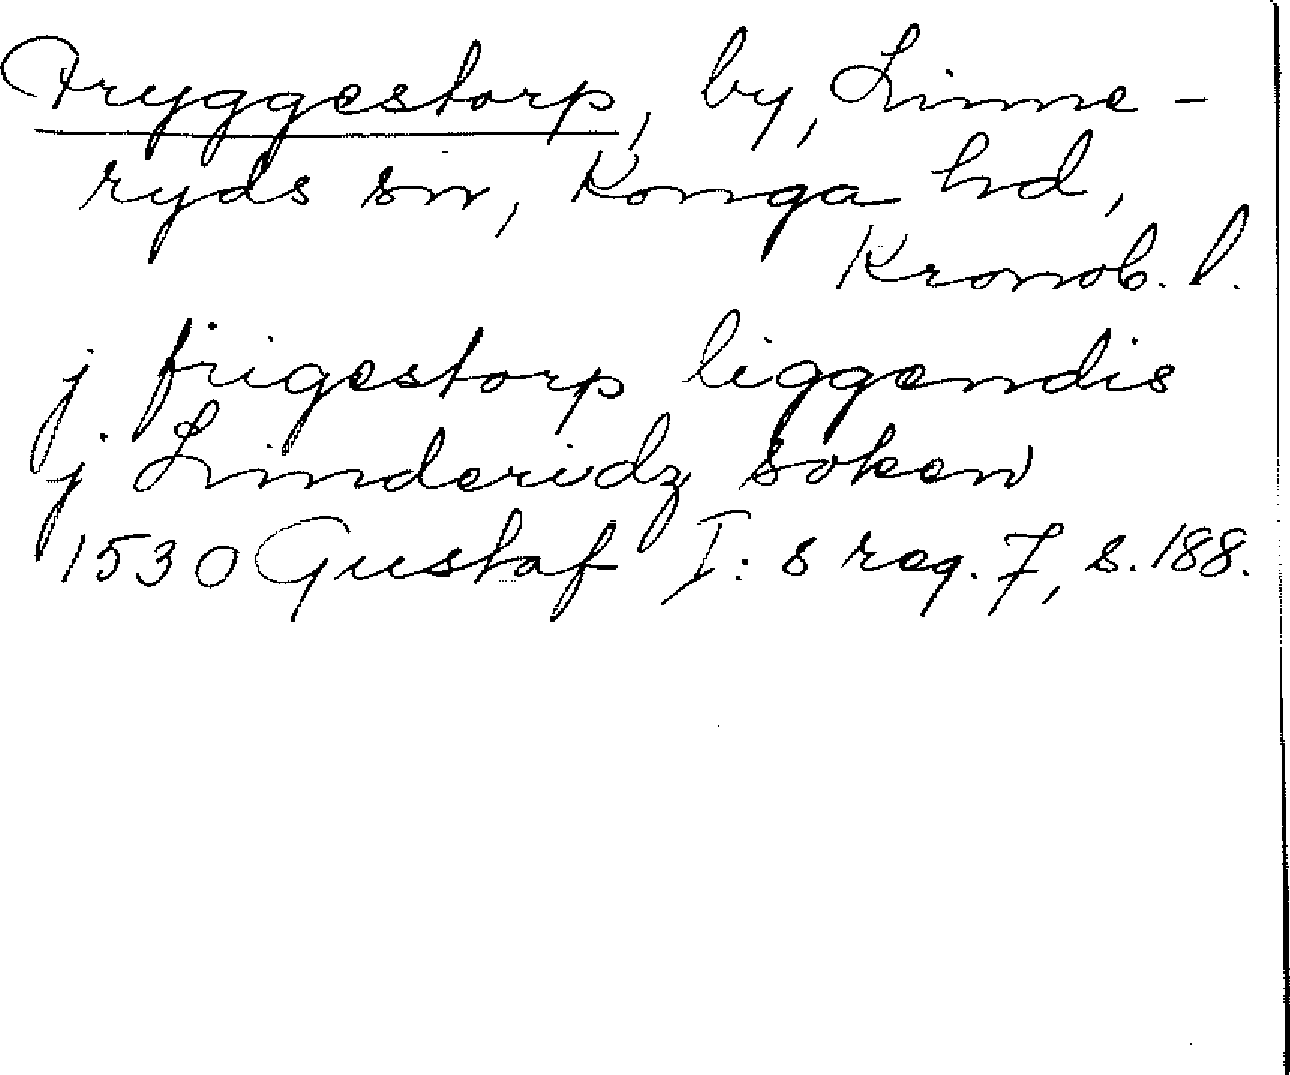 Fryggestorp, by, Linne-
ryds sn, Konga hd,
Kronob. l.
j frigestorp liggendis
j Linderidz soken
1530 Gustaf I:s reg. 7, s. 188.